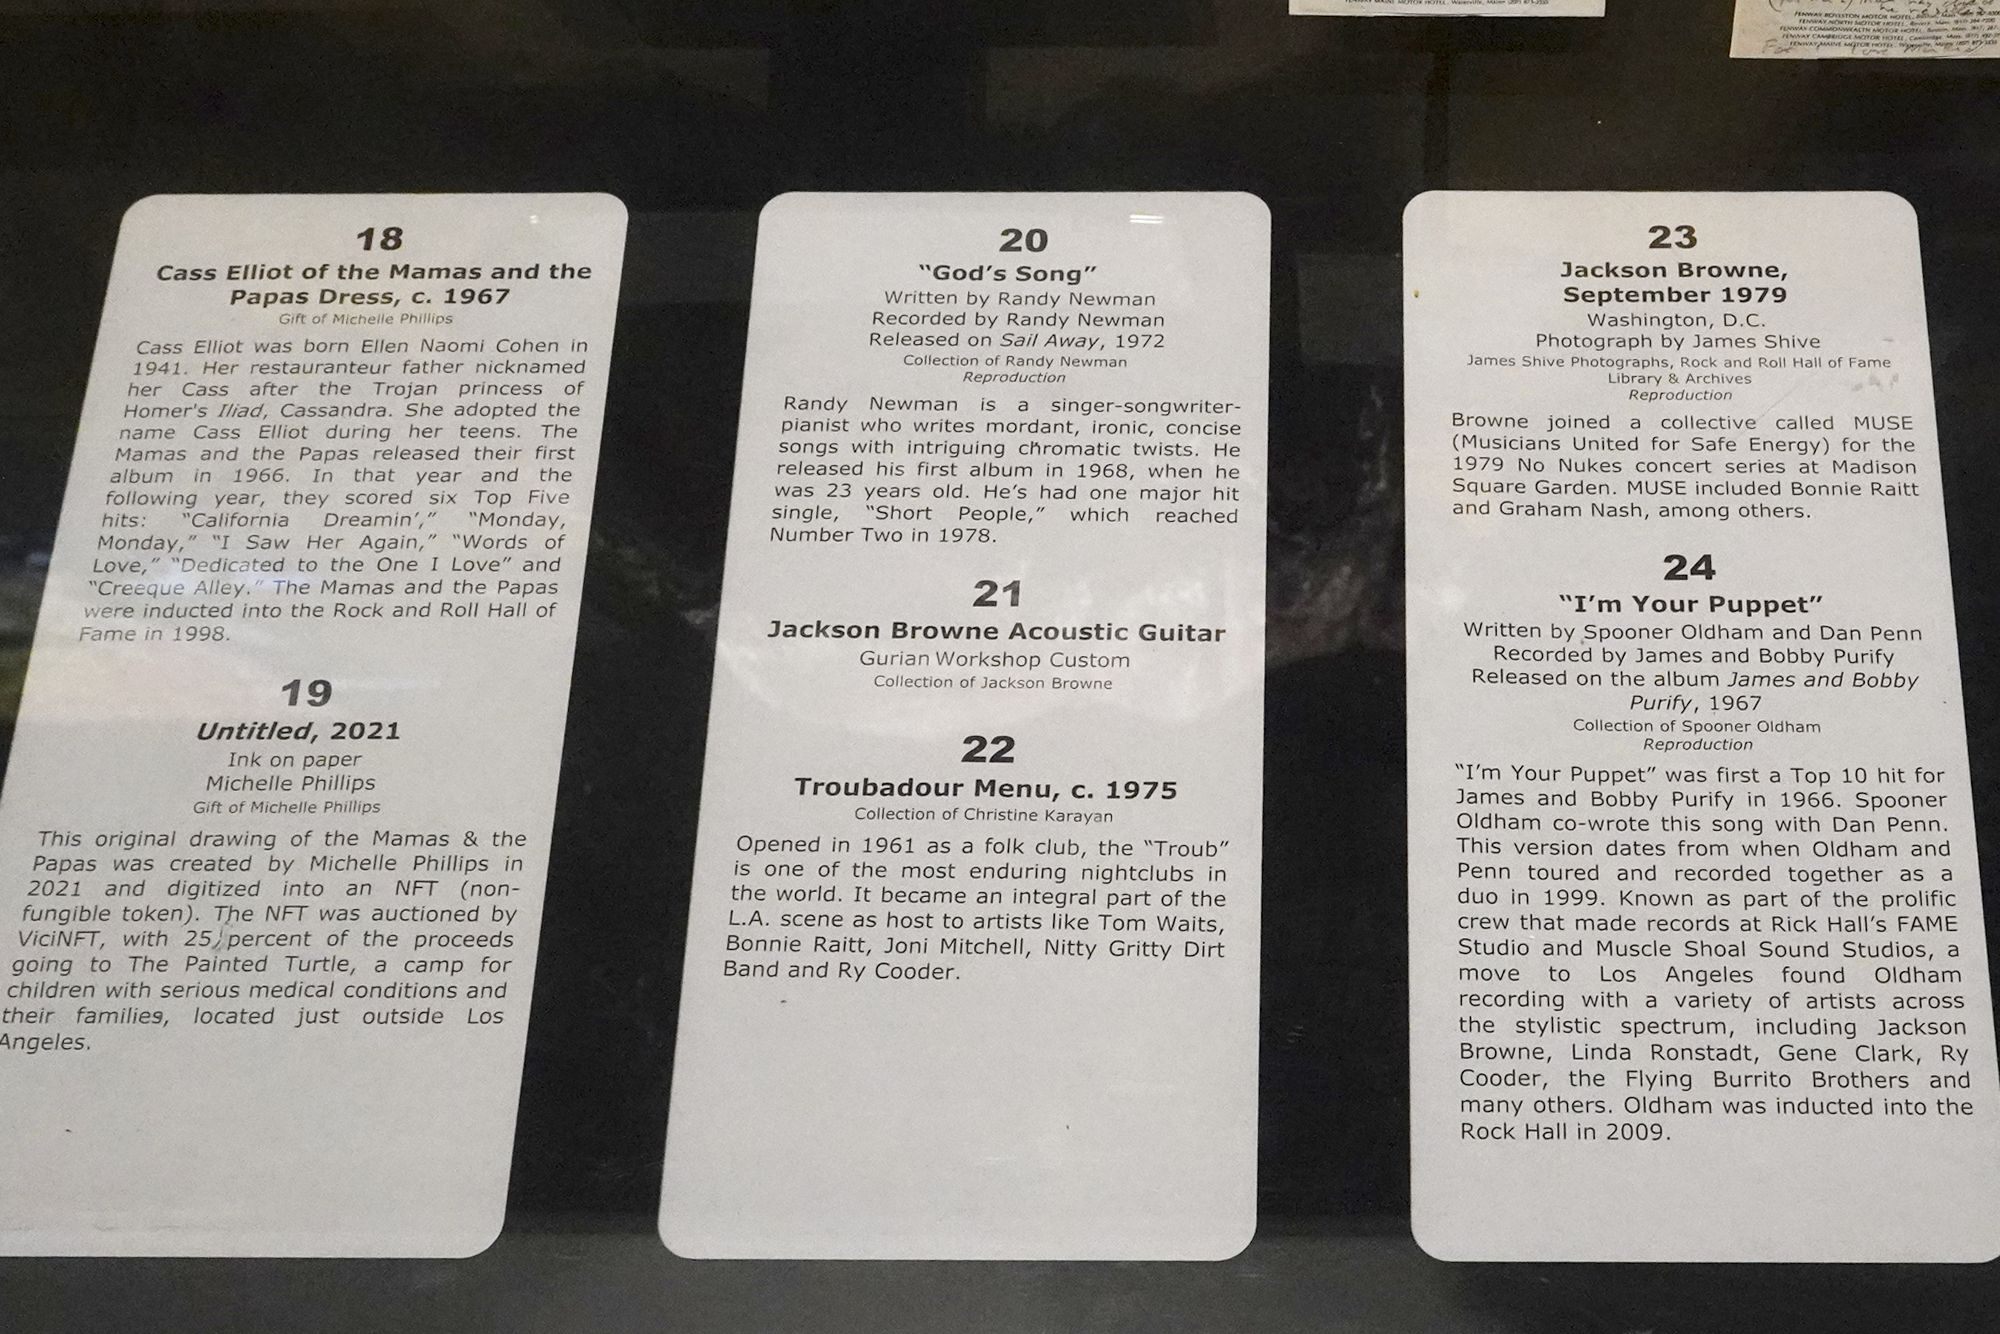 FENWAY MAINE MOTOR HOTEL, Waterville, Maine (207) 873-3335
FENWAY BOYLSTON MOTOR HOTEL, Boston, Mass.
FENWAY NORTH MOTOR HOTEL, Revere, Mass. (617) 284-7200
FENWAY COMMONWEALTH MOTOR HOTEL, Boston, Mass. (617) 267-
FENWAY CAMBRIDGE MOTOR HOTEL, Cambridge, Mass. (617) 492-
FENWAY MAINE MOTOR HOTEL, Waterville, Maine (207) 873-3335
18
Cass Elliot of the Mamas and the
Papas Dress, c. 1967
Gift of Michelle Phillips
Cass Elliot was born Ellen Naomi Cohen in
1941. Her restauranteur father nicknamed
her Cass after the Trojan princess of
Homer's Iliad, Cassandra. She adopted the
name Cass Elliot during her teens. The
Mamas and the Papas released their first
album in 1966. In that year and the
following year, they scored six Top Five
hits: “California Dreamin’,” “Monday,
Monday,” “I Saw Her Again,” “Words of
Love,” “Dedicated to the One I Love” and
“Creeque Alley.” The Mamas and the Papas
were inducted into the Rock and Roll Hall of
Fame in 1998.
19
Untitled, 2021
Ink on paper
Michelle Phillips
Gift of Michelle Phillips
This original drawing of the Mamas & the
Papas was created by Michelle Phillips in
2021 and digitized into an NFT (non-
fungible token). The NFT was auctioned by
ViciNFT, with 25 percent of the proceeds
going to The Painted Turtle, a camp for
children with serious medical conditions and
their families, located just outside Los
Angeles.
20
“God’s Song”
Written by Randy Newman
Recorded by Randy Newman
Released on Sail Away, 1972
Collection of Randy Newman
Reproduction
Randy Newman is a singer-songwriter-
pianist who writes mordant, ironic, concise
songs with intriguing chromatic twists. He
released his first album in 1968, when he
was 23 years old. He’s had one major hit
single, “Short People,” which reached
Number Two in 1978.
21
Jackson Browne Acoustic Guitar
Gurian Workshop Custom
Collection of Jackson Browne
22
Troubadour Menu, c. 1975
Collection of Christine Karayan
Opened in 1961 as a folk club, the “Troub”
is one of the most enduring nightclubs in
the world. It became an integral part of the
L.A. scene as host to artists like Tom Waits,
Bonnie Raitt, Joni Mitchell, Nitty Gritty Dirt
Band and Ry Cooder.
23
Jackson Browne,
September 1979
Washington, D.C.
Photograph by James Shive
James Shive Photographs, Rock and Roll Hall of Fame
Library & Archives
Reproduction
Browne joined a collective called MUSE
(Musicians United for Safe Energy) for the
1979 No Nukes concert series at Madison
Square Garden. MUSE included Bonnie Raitt
and Graham Nash, among others.
24
“I’m Your Puppet”
Written by Spooner Oldham and Dan Penn
Recorded by James and Bobby Purify
Released on the album James and Bobby
Purify, 1967
Collection of Spooner Oldham
Reproduction
“I’m Your Puppet” was first a Top 10 hit for
James and Bobby Purify in 1966. Spooner
Oldham co-wrote this song with Dan Penn.
This version dates from when Oldham and
Penn toured and recorded together as a
duo in 1999. Known as part of the prolific
crew that made records at Rick Hall’s FAME
Studio and Muscle Shoal Sound Studios, a
move to Los Angeles found Oldham
recording with a variety of artists across
the stylistic spectrum, including Jackson
Browne, Linda Ronstadt, Gene Clark, Ry
Cooder, the Flying Burrito Brothers and
many others. Oldham was inducted into the
Rock Hall in 2009.